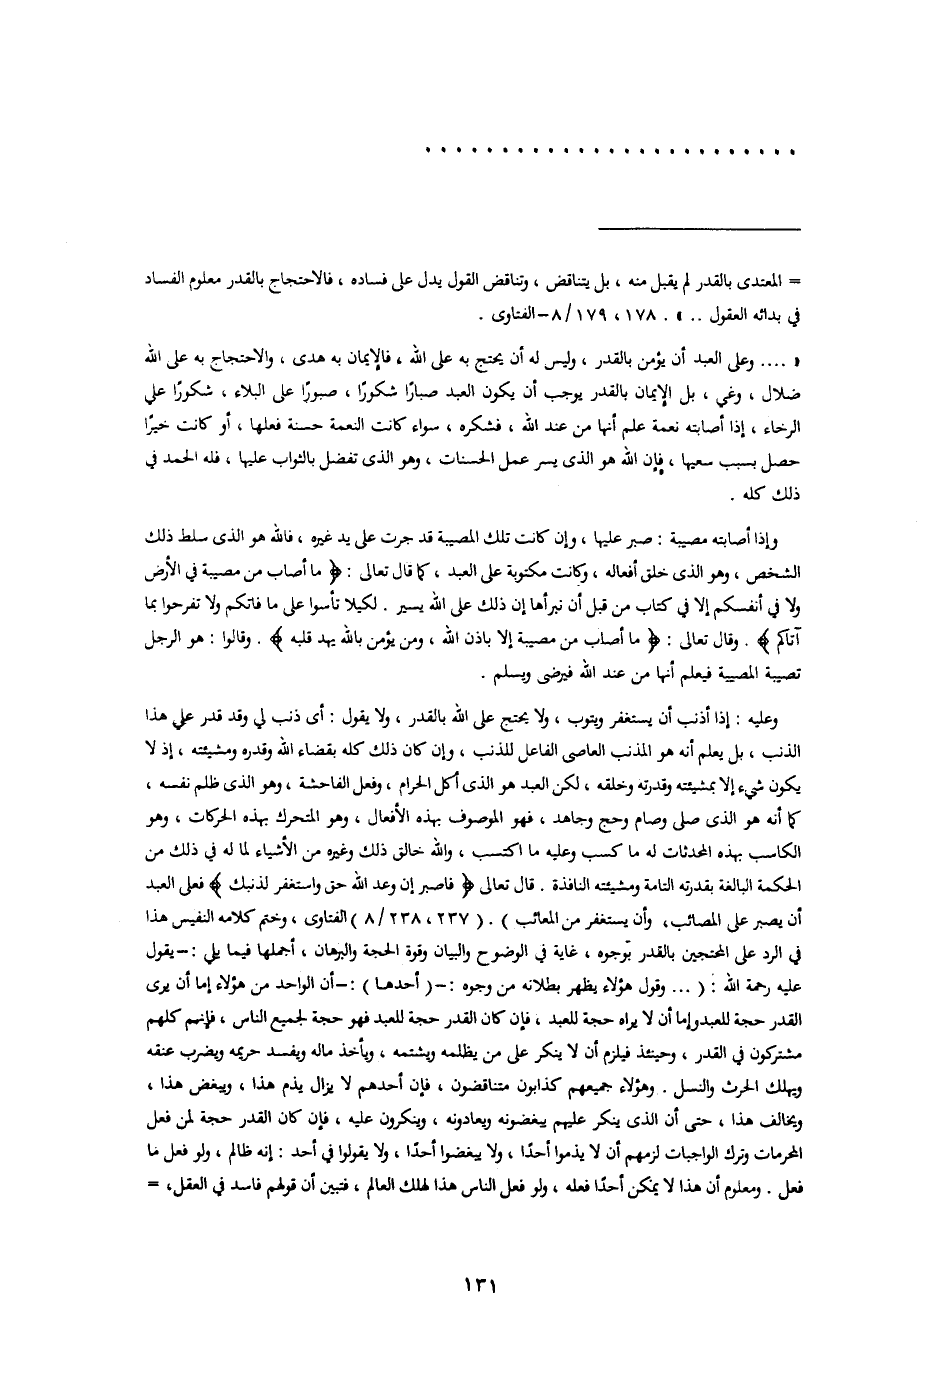 . . . . . . . . . . . . . . . . . . . . . . . . .
= المعتدى بالقدر لم يقبل منه ، بل يتناقض ، وتناقض القول يدل على فساده ، فالاحتجاج بالقدر معلوم الفساد
في بدائه العقول .. » . ١٧٨ ، ١٧٩ /٨–الفتاوى .
« .... وعلى العبد أن يؤمن بالقدر ، وليس له أن يحتج به على الله ، فالإيمان به هدى ، والاحتجاج به على الله
ضلال ، وغي ، بل الإيمان بالقدر يوجب أن يكون العبد صبارًا شكورًا ، صبورًا على البلاء ، شكورًا علي
الرخاء ، إذا أصابته نعمة علم أنها من عند الله ، فشكره ، سواء كانت النعمة حسنة فعلها ، أو كانت خيرًا
حصل بسبب سعيها ، فإن الله هو الذى يسر عمل الحسنات ، وهو الذى تفضل بالثواب عليها ، فله الحمد في
ذلك كله .
وإذا أصابته مصيبة : صبر عليها ، وإن كانت تلك المصيبة قد جرت على يد غيره ، فالله هو الذى سلط ذلك
الشخص ، وهو الذى خلق أفعاله ، وكانت مكتوبة على العبد ، كما قال تعالى : ﴿ ما أصاب من مصيبة في الأرض
ولا في أنفسكم إلا في كتاب من قبل أن نبرأها إن ذلك على الله يسير . لكيلا تأسوا على ما فاتكم ولا تفرحوا بما
آتاكم ﴾ . وقال تعالى : ﴿ ما أصاب من مصيبة إلا باذن الله ، ومن يؤمن بالله يهد قلبه ﴾ . وقالوا : هو الرجل
تصيبة المصيبة فيعلم أنها من عند الله فيرضى ويسلم .
وعليه : إذا أذنب أن يستغفر ويتوب ، ولا يحتج على الله بالقدر ، ولا يقول : أى ذنب لي وقد قدر علي هذا
الذنب ، بل يعلم أنه هو المذنب العاصى الفاعل للذنب ، وإن كان ذلك كله بقضاء الله وقدره ومشيئته ، إذ لا
يكون شيء إلا بمشيئته وقدرته وخلقه ، لكن العبد هو الذى أكل الحرام ، وفعل الفاحشة ، وهو الذى ظلم نفسه ،
كما أنه هو الذى صلى وصام وحج وجاهد ، فهو الموصوف بهذه الأفعال ، وهو المتحرك بهذه الحركات ، وهو
الكاسب بهذه المحدثات له ما كسب وعليه ما اكتسب ، والله خالق ذلك وغيره من الأشياء لما له في ذلك من
الحكمة البالغة بقدرته التامة ومشيئته النافذة . قال تعالى ﴿ فاصبر إن وعد الله حق واستغفر لذنبك ﴾ فعلى العبد
أن يصبر على المصائب، وأن يستغفر من المعائب ) . ( ٢٣٧ ، ٢٣٨ / ٨ )الفتاوى ، وختم كلامه النفيس هذا
في الرد على المحتجين بالقدر بوجوه ، غاية في الوضوح والبيان وقوة الحجة والبرهان ، أجملها فيما يلي :–يقول
عليه رحمة الله : ( ... وقول هؤلاء يظهر بطلانه من وجوه :–( أحدهـا ) :–أن الواحد من هؤلاء إما أن يرى
القدر حجة للعبد وإما أن لا يراه حجة للعبد ، فإن كان القدر حجة للعبد فهو حجة لجميع الناس ، فإنهم كلهم
مشتركون في القدر ، وحينئذ فيلزم أن لا ينكر على من يظلمه ويشتمه ، ويأخذ ماله ويفسد حريمه ويضرب عنقه
ويهلك الحرث والنسل . وهؤلاء جميعهم كذابون متناقضون ، فإن أحدهم لا يزال يذم هذا ، ويبغض هذا ،
ويخالف هذا ، حتى أن الذى ينكر عليهم يبغضونه ويعادونه ، وينكرون عليه ، فإن كان القدر حجة لمن فعل
المحرمات وترك الواجبات لزمهم أن لا يذموا أحدًا ، ولا يبغضوا أحدًا ، ولا يقولوا في أحد : إنه ظالم ، ولو فعل ما
فعل . ومعلوم أن هذا لا يمكن أحدًا فعله ، ولو فعل الناس هذا لهلك العالم ، فتبين أن قولهم فاسد في العقل، =
١٣١